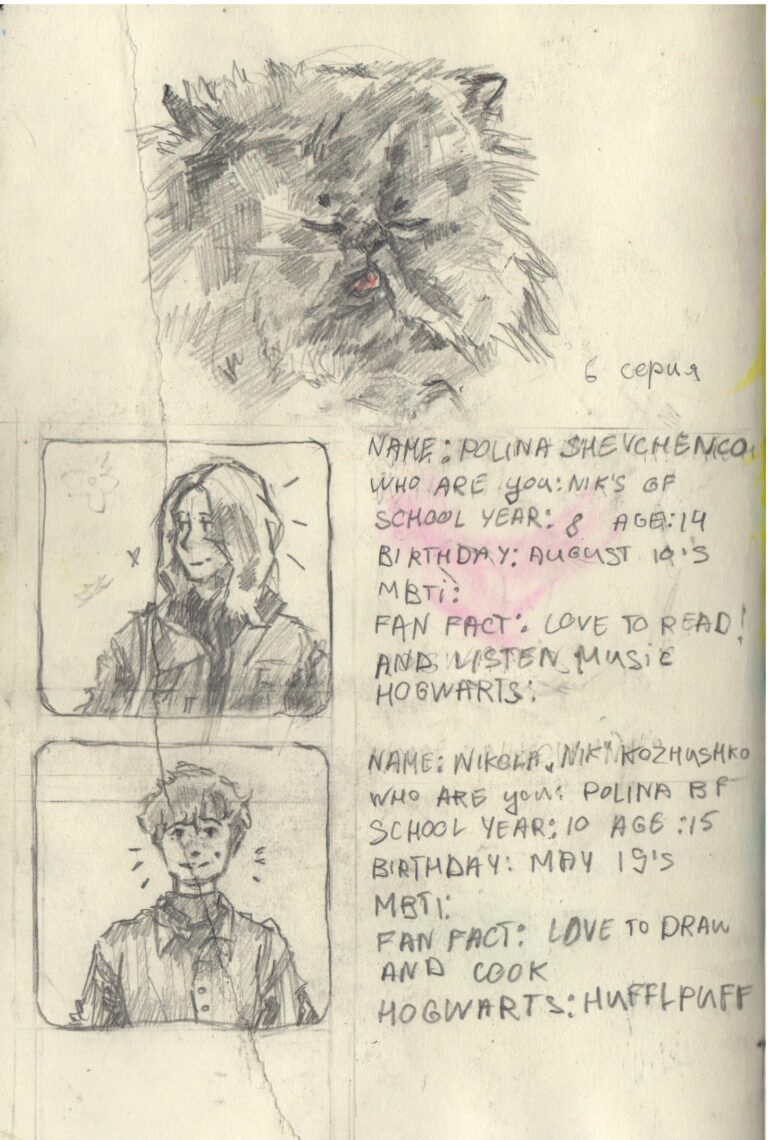 6 серия
NAME: POLINA SHEVCHENCO
WHO ARE you: NIK'S GF
SCHOOL YEAR: 8 AGE: 14
BIRTHDAY: AUGUST 19'S
MBTi:
FAN FACT: LOVE TO READ!
AND LISTEN MUSIC
HOGWARTS:
NAME: NIKOLA „NIK" KOZHUSHKO
WHO ARE you: POLINA BF
SCHOOL YEAR: 10 AGE: 15
BIRTHDAY: MAY 19'S
MBTI:
FAN FACT: LOVE TO DRAW
AND COOK
HOGWARTS: HUFFLPUFF